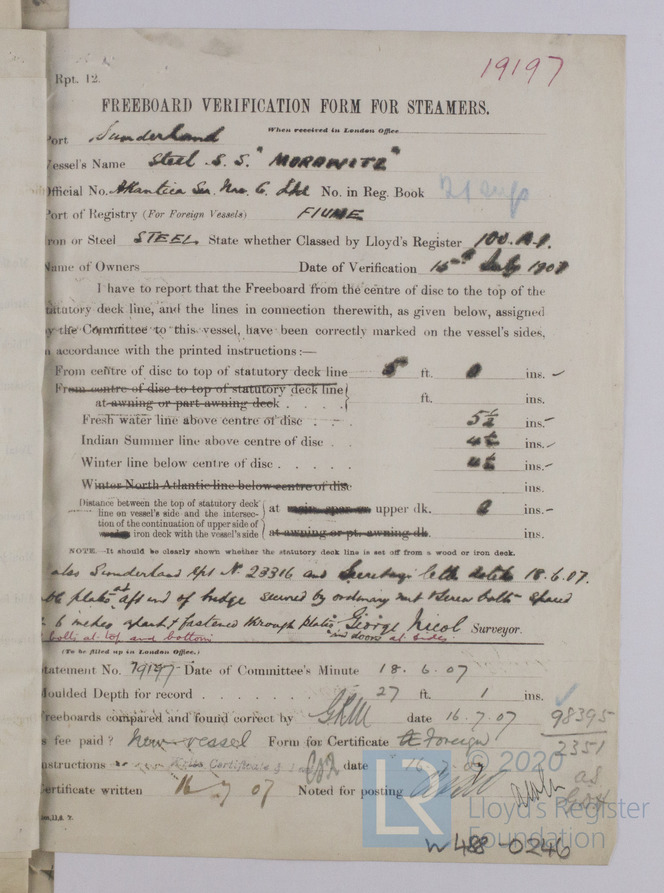 19197
Rpt. 12.
FREEBOARD VERIFICATION FORM FOR STEAMERS.
When received in London Office
Port Sunderland
Vessel's Name Steel S.S. "MORAWITZ"
Official No. Atlantica Sea Nav. C. Ltd No. in Reg. Book 21 sup
Port of Registry (For Foreign Vessels) FIUME
Iron or Steel STEEL State whether Classed by Lloyd's Register 100.A.1.
Name of Owners Date of Verification 15th July 1907
I have to report that the Freeboard from the centre of disc to the top of the
statutory deck line, and the lines in connection therewith, as given below, assigned
by the Committee to this vessel, have been correctly marked on the vessel's sides,
in accordance with the printed instructions:—
From centre of disc to top of statutory deck line 5 ft. 0 ins.
From centre of disc to top of statutory deck line
at awning or part awning deck ft. ins.
Fresh water line above centre of disc 5½ ins.
Indian Summer line above centre of disc 4½ ins.
Winter line below centre of disc 4½ ins.
Winter North Atlantic line below centre of disc ins.
Distance between the top of statutory deck
line on vessel's side and the intersec-
tion of the continuation of upper side of
iron deck with the vessel's side
at upper dk. ins.
at awning or pt. awning dk. ins.
NOTE.—It should be clearly shown whether the statutory deck line is set off from a wood or iron deck.
Sunderland Rpt No. 23316 and Secretary's letter dated 18.6.07.
plates at aft end of bridge secured by ordinary nut & screw bolts spaced
6 inches apart & fastened through plates George Nicol Surveyor.
bolts at top and bottom "and doors at sides.
(To be filled up in London Office.)
Statement No. 19197 Date of Committee's Minute 18.6.07
Moulded Depth for record 27 ft. 1 ins.
Freeboards compared and found correct by GRM date 16.7.07
98395
Is fee paid? New vessel Form for Certificate Foreign
2351
Instructions date 16.7.07
Certificate written 16 7 07 Noted for posting
© 2020
LR
Lloyd's Register
Foundation
W488-0246